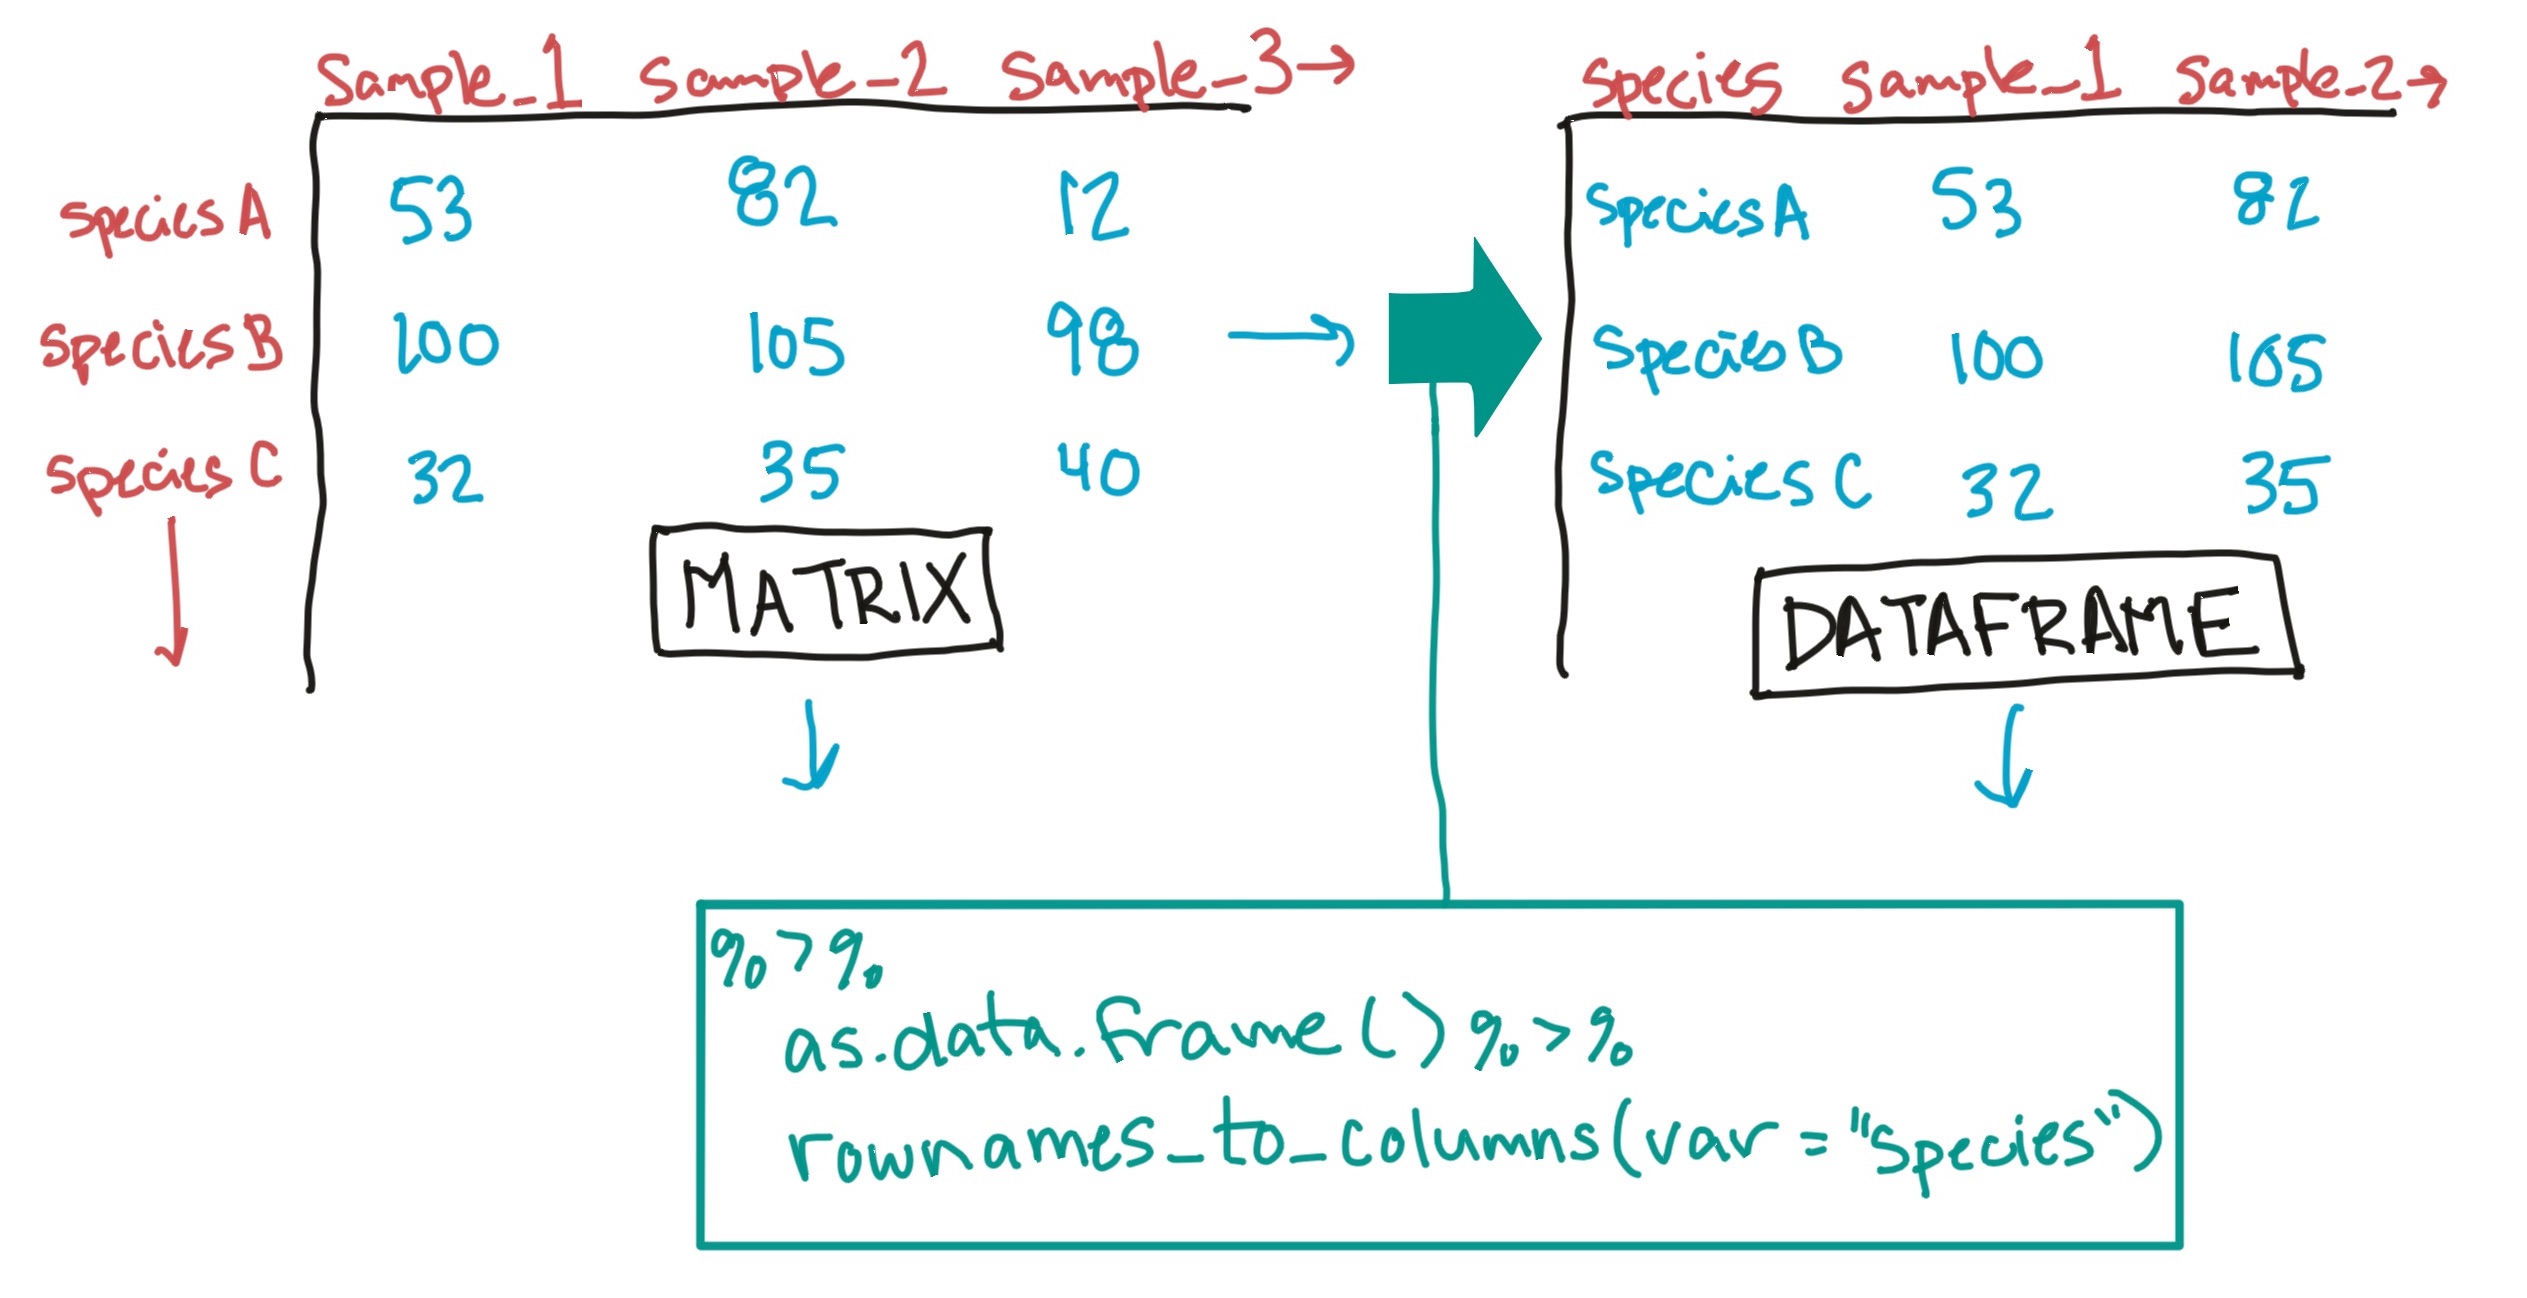 Sample_1 Sample_2 Sample_3
Species A 53 82 12
Species B 100 105 98
Species C 32 35 40
MATRIX
Species Sample_1 Sample_2
Species A 53 82
Species B 100 105
Species C 32 35
DATAFRAME
%>%
as.data.frame() %>%
rownames_to_columns(var = "Species")